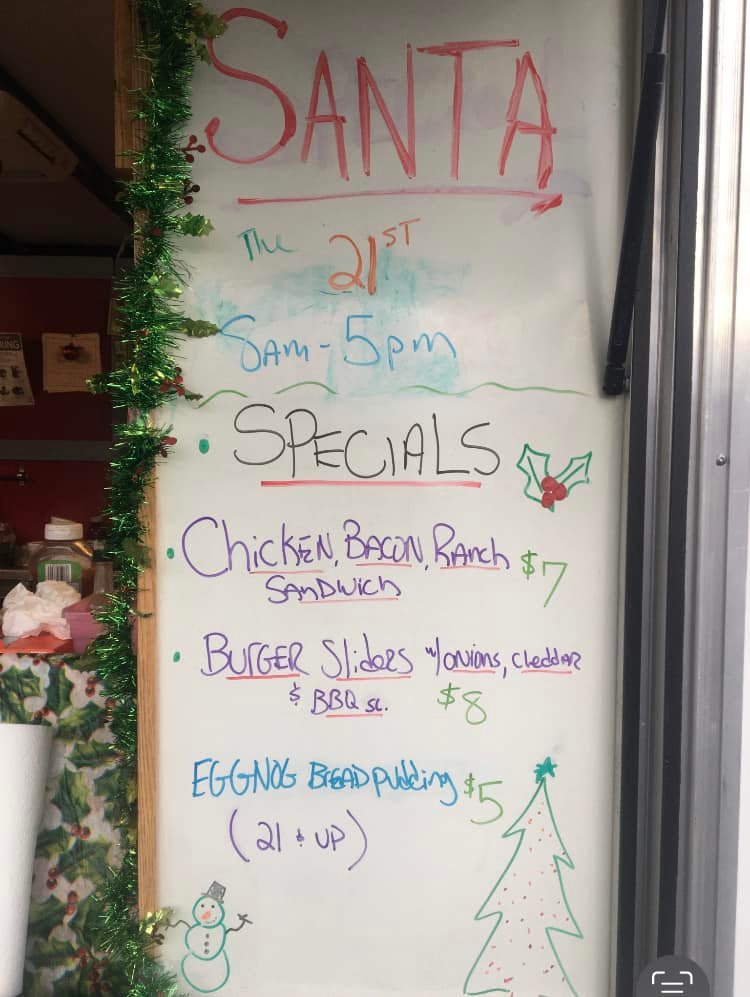 SANTA
The 21ST
8am - 5pm
• SPECIALS
• Chicken, Bacon, Ranch $7
Sandwich
• Burger Sliders w/onions, cheddar
& BBQ sc. $8
EGGNOG Bread pudding $5
(21 & up)